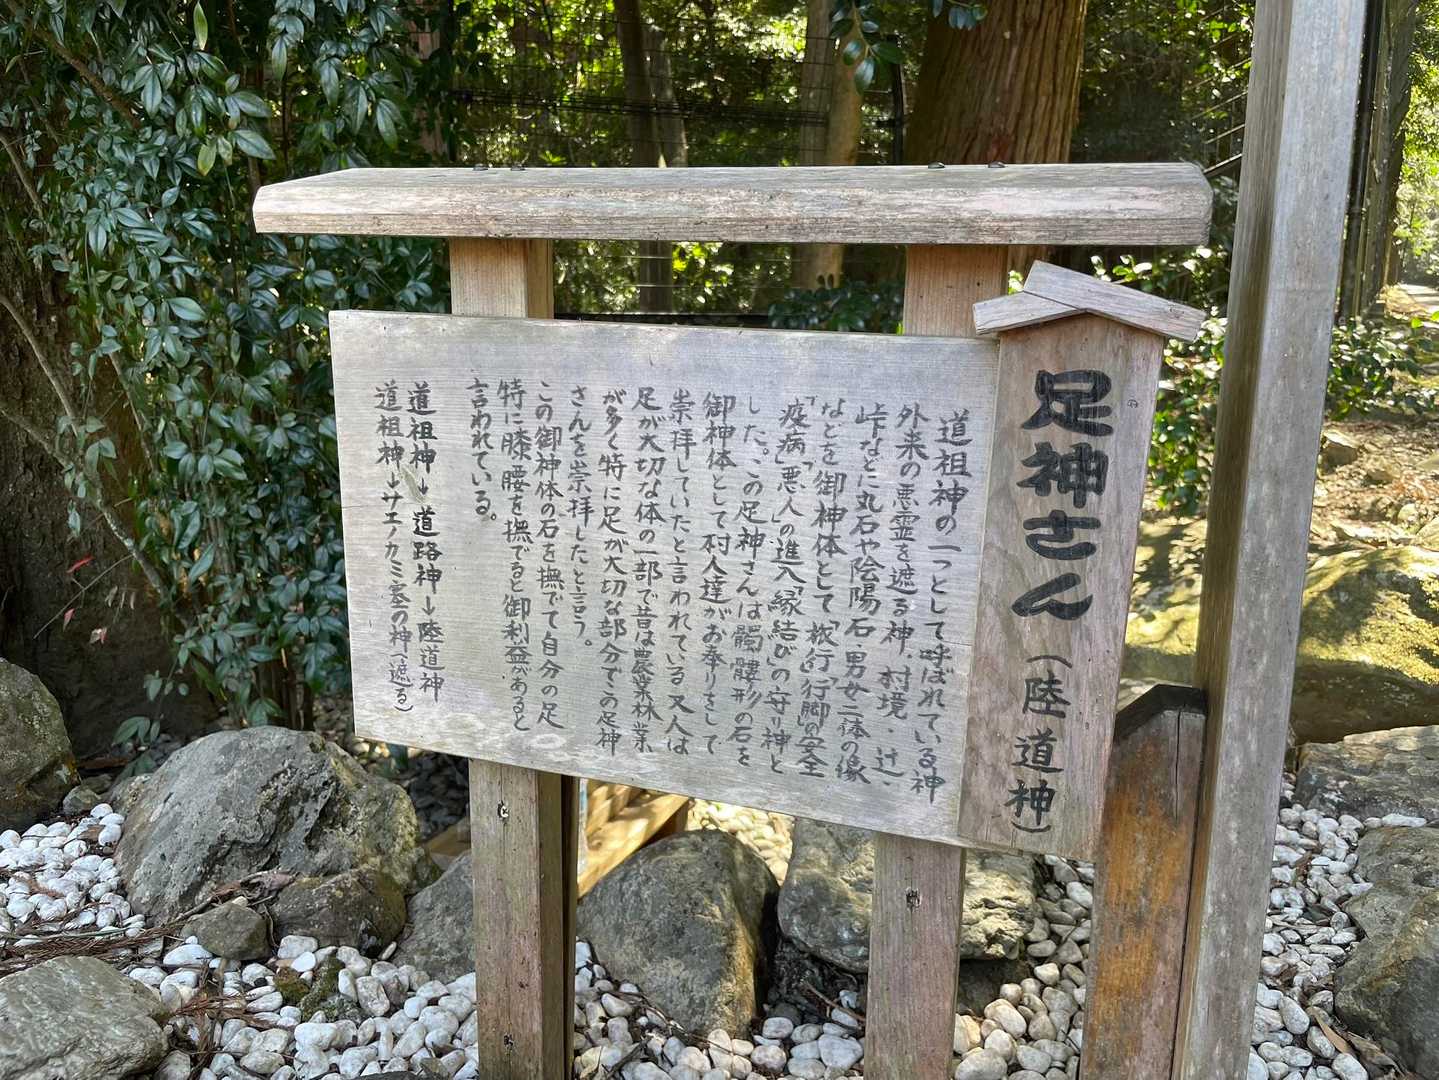 足神さん(陸道神)
道祖神の一つとして呼ばれている神
外来の悪霊を遮る神、村境・辻、
峠などに丸石や陰陽石・男女二体の像
などを御神体として「旅行」「行脚」の安全
「疫病」「悪人」の進入「縁結び」の守り神と
した。この足神さんは髑髏形の石を
御神体として村人達がお奉りをして
崇拝していたと言われている又人は
足が大切な体の一部で昔は農業林業
が多く特に足が大切な部分でこの足神
さんを崇拝したと言う。
この御神体の石を撫でて自分の足
特に膝、腰を撫でると御利益があると
言われている。
道祖神→道路神→陸道神
道祖神→サエノカミ塞の神(遮る)